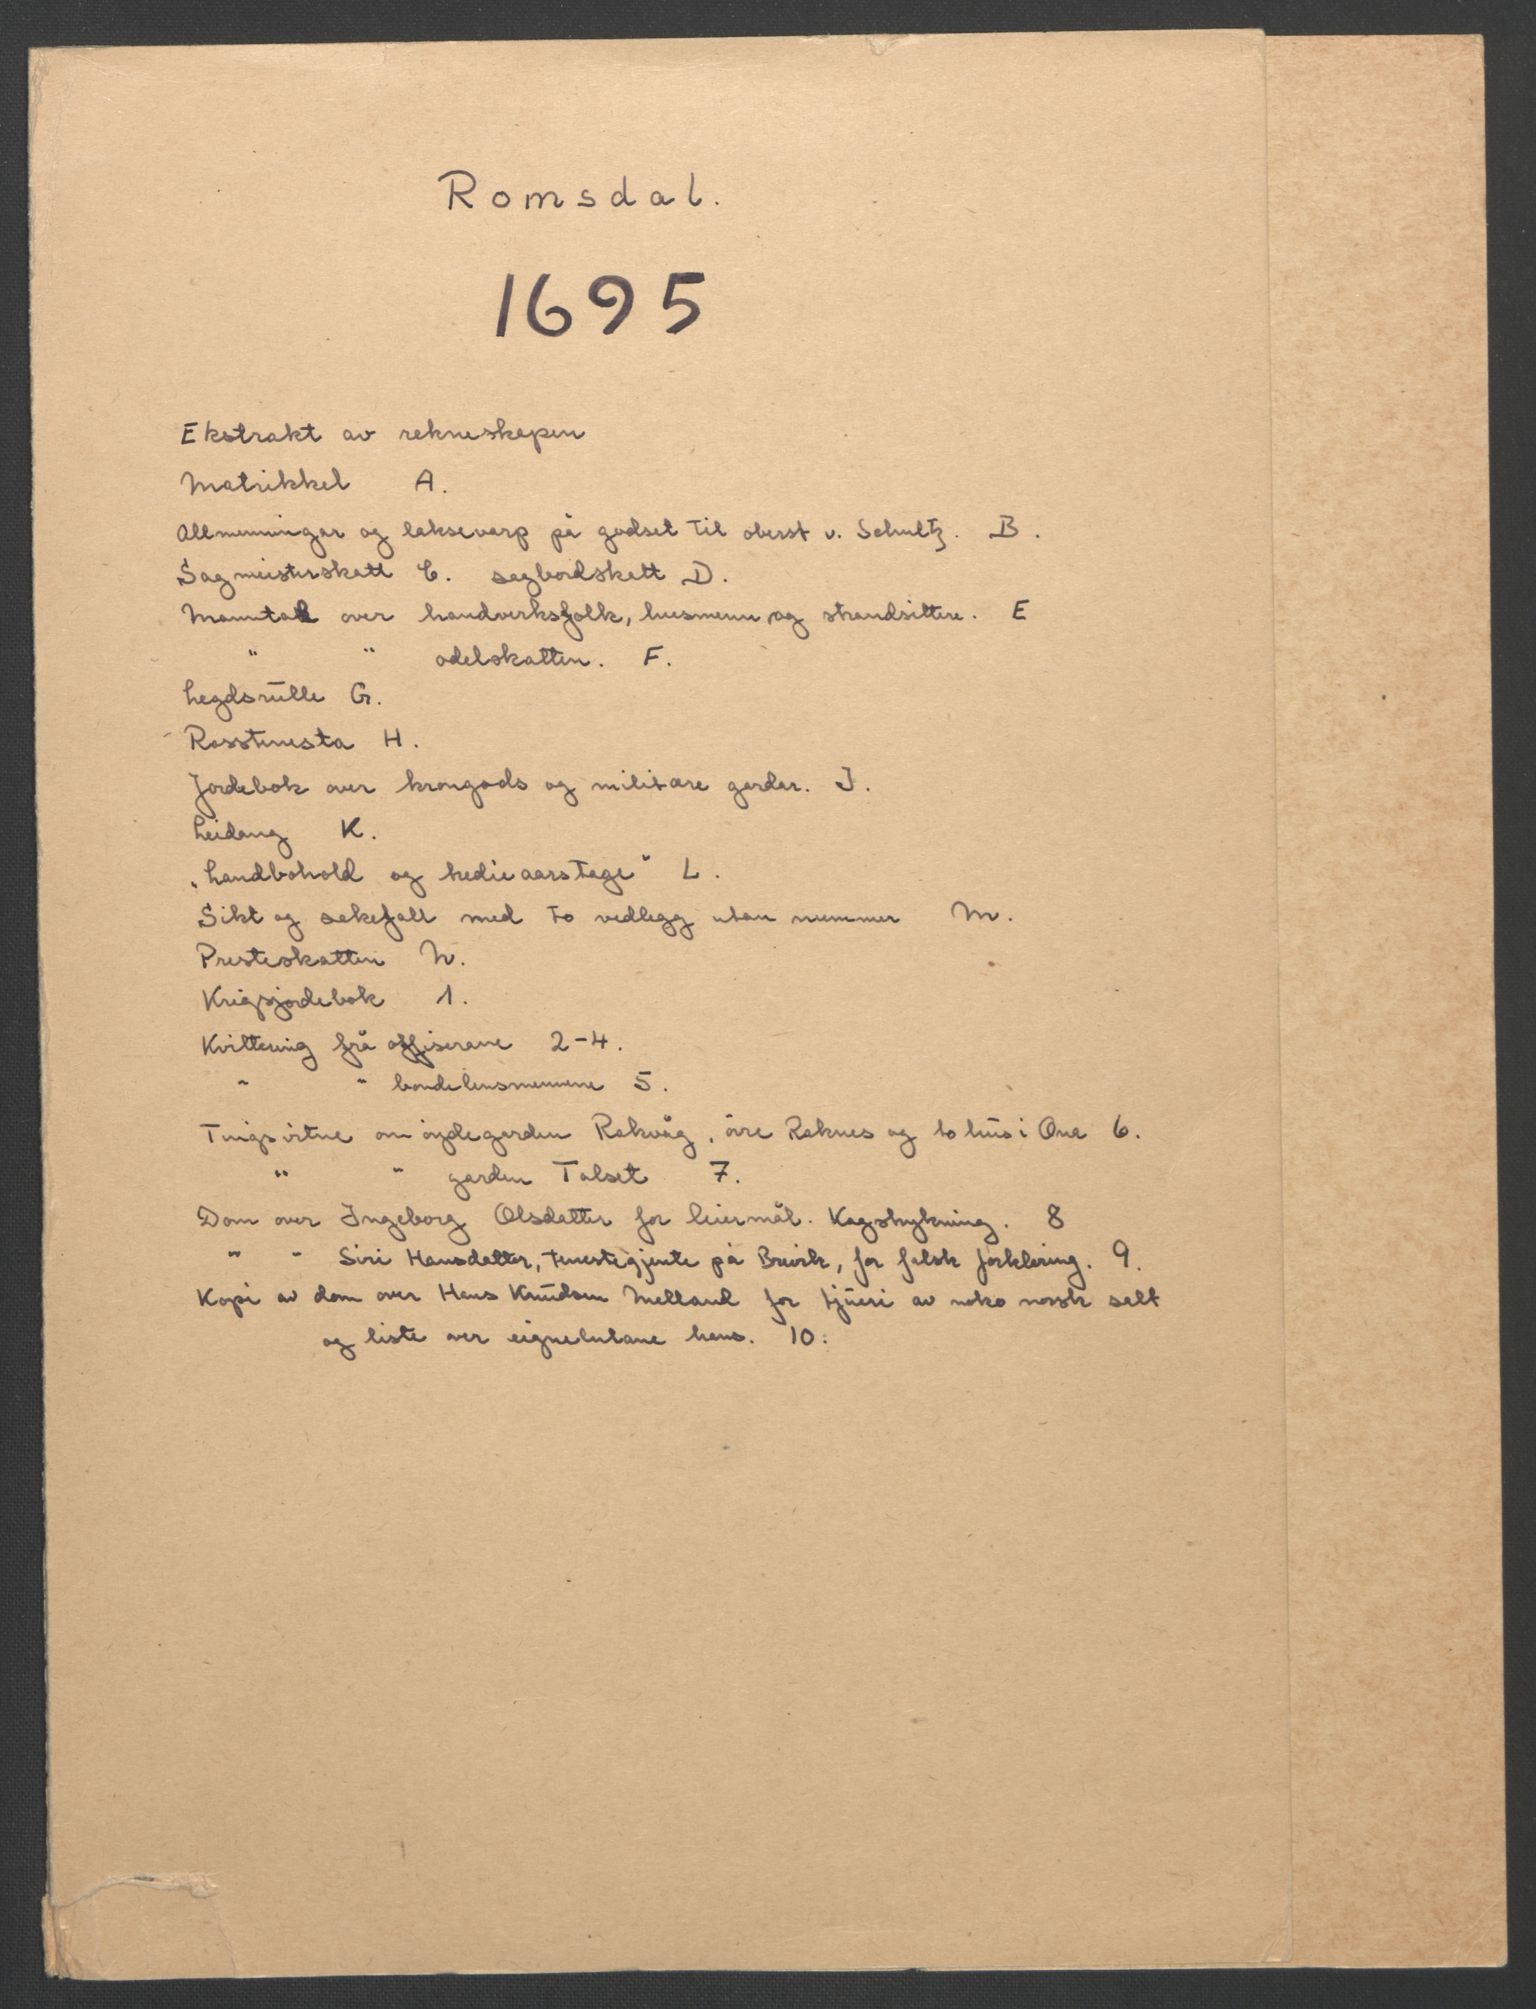 Romsdal.
1695
Ekstrakt av rekneskapen
Matrikkel A.
Allmenningar og laksevarp på godset til oberst v. Schultz. B.
Sagmeisterskatt C. sagbordskatt D.
Manntal over handverksfolk, husmenn og strandsittere. E
" " odelskatten. F.
Legdsrulle G.
Rosstenesta H.
Jordebok over krongods og militære gardar. J.
Leidang K.
"Landbohold og tredieaarstage" L.
Sikt og sakefall med to vedlegg utan nummer M.
Presteskatten N.
Krigsjordebok 1.
Kvittering frå offiserane 2-4.
" " bondelensmennene 5.
Tingsvitne om øydegarden Rakvåg, øvre Raknes og to hus i Ona 6.
" " garden Talset 7.
Dom over Ingeborg Olsdatter for leiermål. Kagstrykning. 8
" " Siri Hansdatter, tenestegjente på Brevik, for falsk forklåring. 9.
Kopi av dom over Hans Knudsen Melland for tjueri av noko norsk salt
og liste over eignelutane hans. 10.